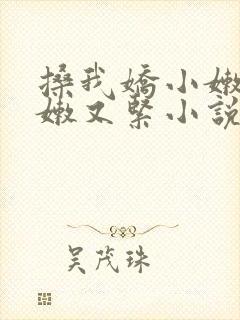 搡我嬌小嫩
嫩又緊小說
吴茂珠